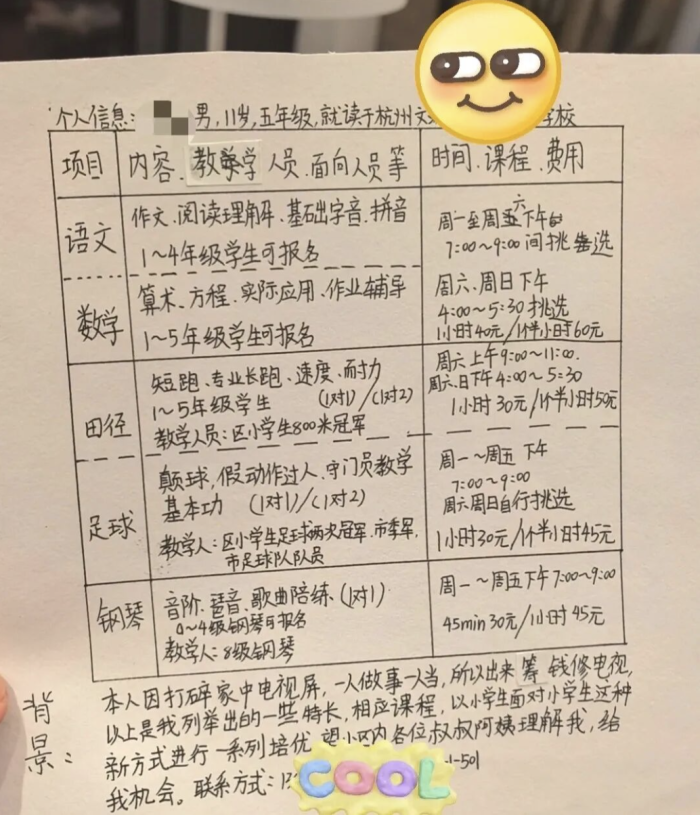 个人信息: 男,11岁,五年级,就读于杭州文 学校
项目 内容、教学 人员、面向人员等 时间、课程、费用
语文
作文、阅读理解、基础字音、拼音
1~4年级学生可报名
周一至周五六下午的
7:00~9:00间挑选
数学
算术、方程、实际应用、作业辅导
1~5年级学生可报名
周六、周日下午
4:00~5:30挑选
1小时40元/1个半小时60元
田径
短跑、专业长跑、速度、耐力
1~5年级学生 (1对1)/(1对2)
教学人员:区小学生800米冠军
周六上午9:00~11:00.
周六、日下午4:00~5:30
1小时30元/1个半小时50元
足球
颠球,假动作过人、守门员教学
基本功 (1对1)/(1对2)
教学人:区小学生足球两次冠军.市季军.
市足球队队员
周一~周五 下午
7:00~9:00
周六周日自行挑选
1小时30元/1个半小时45元
钢琴
音阶、琶音、歌曲陪练、(1对1)
0~4级钢琴可报名
教学人:8级钢琴
周一~周五下午7:00~9:00
45min 30元/1小时 45元
背景:
本人因打碎家中电视屏,一人做事一人当,所以出来筹 钱修电视,
以上是我列举出的一些特长,相应课程,以小学生面对小学生这种
新方式进行一系列培优.望小区内各位叔叔阿姨理解我,给
我机会。联系方式:13 1-501
COOL